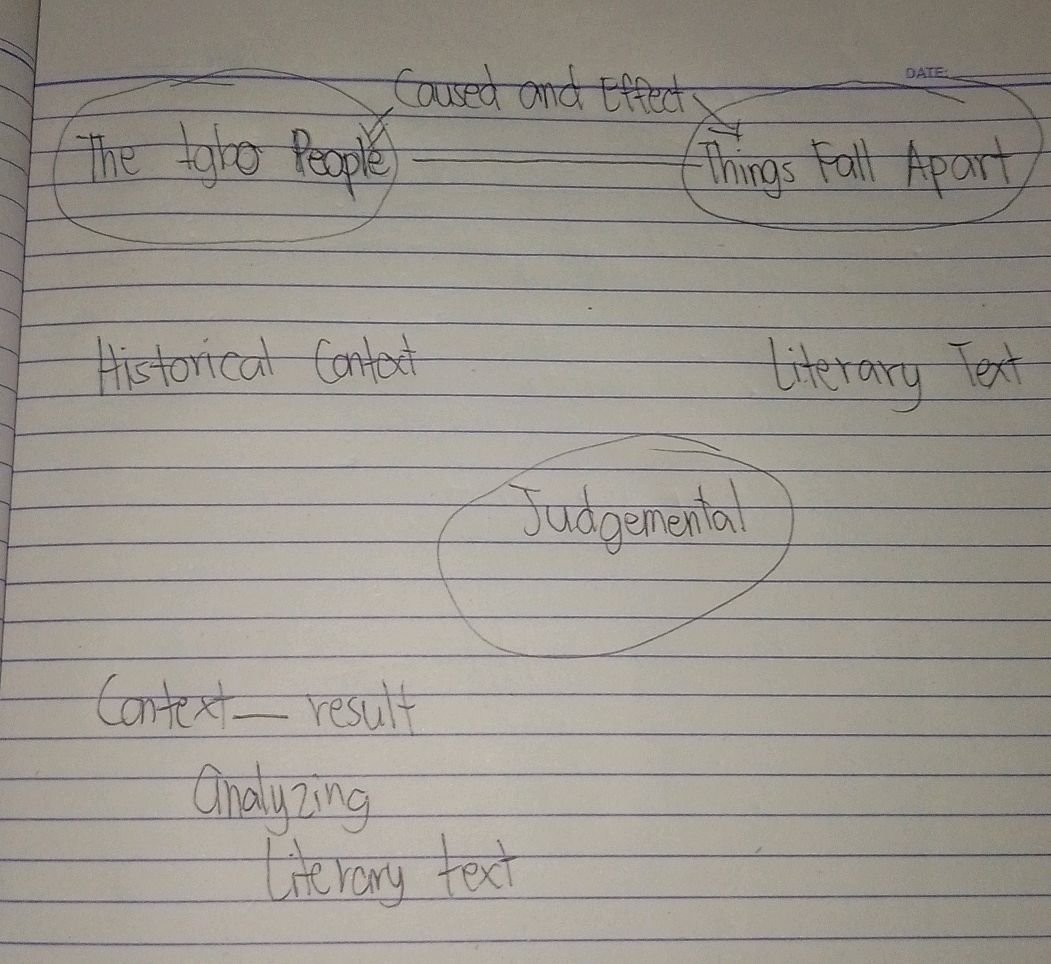 DATE:
Caused and Effect
The Igbo People Things Fall Apart
Historical Context Literary Text
Judgemental
Context — result
Analyzing
Literary text